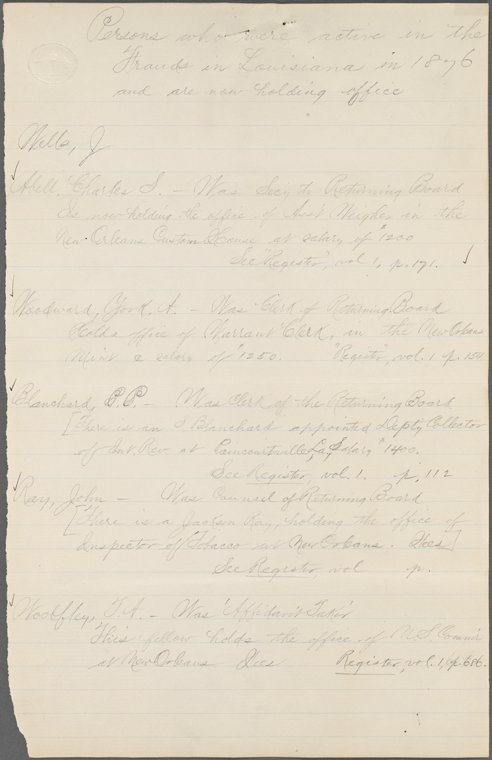 Persons who were active in the
Frauds in Louisiana in 1876
and are now holding office
Wells, J
Abell, Charles S. – Was Sec'y to Returning Board
Is now holding the office of Ass't Weigher in the
New Orleans Custom House at salary of $1200
See "Register", vol 1, p. 171.
Woodward, York A. – Was Clerk of Returning Board
Holds office of Warrant Clerk, in the New Orleans
Mint a salary of 1250. "Register, vol. 1 p. 154
Blanchard, P.P. – Was Clerk of the Returning Board
[There is an  Blanchard appointed Dep'ty Collector
of Int. Rev. at  La, Salary $1400.
See Register, vol. 1. p. 112
Ray, John – Was Counsel of Returning Board
[There is a Jackson Ray, holding the office of
Inspector of Tobacco at New Orleans.
See Register, vol p.
T.A. – Was 'Affidavit Taker'
This fellow holds the office of U.S. Comm'r
at New Orleans Register, vol. 1, p. 606.